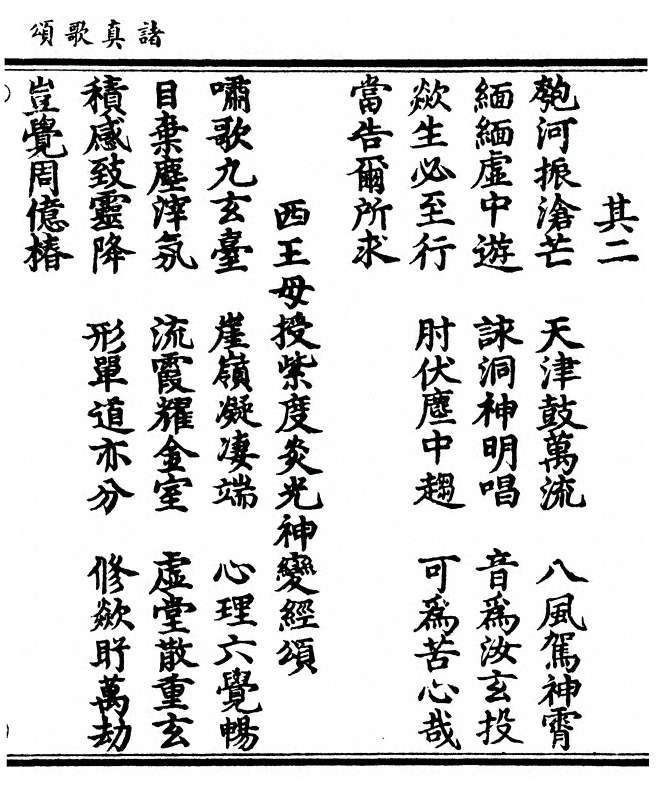 諸真歌頌
其二
匏河振滄芒 天津鼓萬流 八風駕神霄
緬緬虛中遊 詠洞神明唱 音為汝玄投
歘生必至行 肘伏塵中趨 可為苦心哉
當告爾所求
西王母授紫度炎光神變經頌
嘯歌九玄臺 崖嶺凝淒端 心理六覺暢
目棄塵滓氛 流霞耀金室 虛堂散重玄
積感致靈降 形單道亦分 修歘盱萬劫
豈覺周億椿